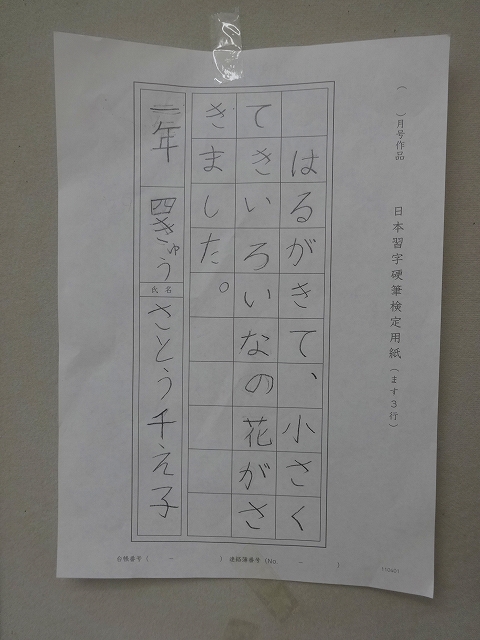 （　　）月号作品
日本習字硬筆検定用紙（ます３行）
はるがきて、小さく
てきいろいなの花がさ
きました。
二年
四きゅう
氏名
さとう千え子
台帳番号（　－　）　連絡簿番号（No.　－　）
110401